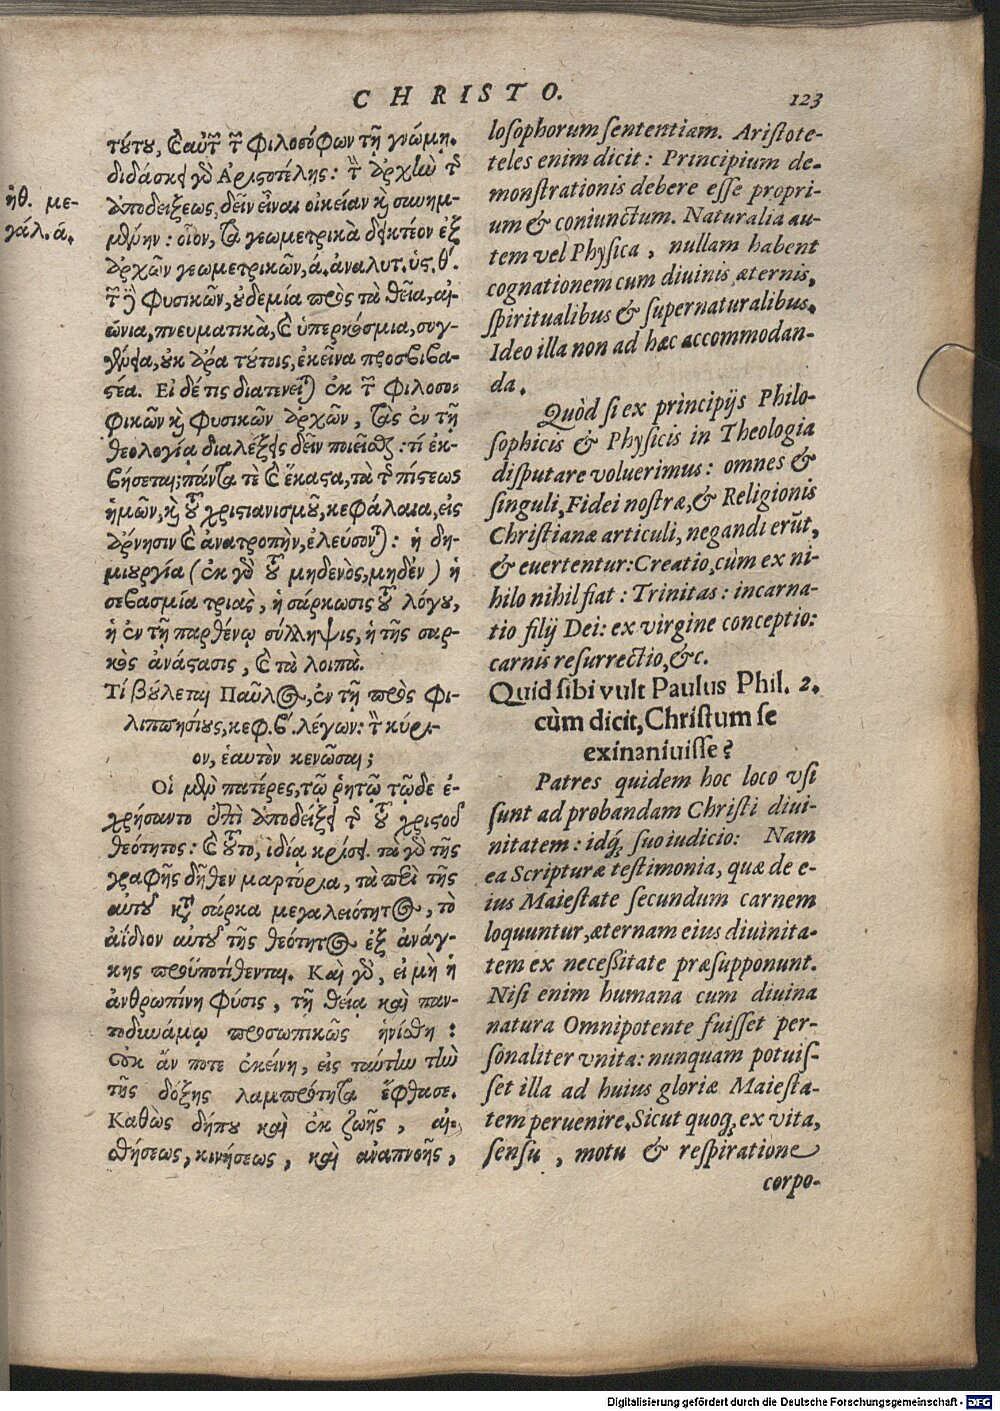 CHRISTO.
123
ἠθ. με-
γάλ. ά.
τούτου, καὶ αὐτῶν τῶν φιλοσόφων τῇ γνώμῃ.
διδάσκει γὰρ Ἀριστοτέλης: τὴν ἀρχὴν τῆς
ἀποδείξεως, δεῖν εἶναι οἰκείαν καὶ συνημ-
μένην: οἷον, τὰ γεωμετρικὰ δεικτέον ἐξ
ἀρχῶν γεωμετρικῶν, ά. ἀναλυτ. ὑς. θ'.
τῶν δὲ φυσικῶν, οὐδεμία πρὸς τὰ θεῖα, αἰ-
ώνια, πνευματικὰ, καὶ ὑπερκόσμια, συγ-
γένεια, οὐκ ἄρα τούτοις, ἐκεῖνα προσβιβα-
στέα. Εἰ δέ τις διατενεῖται ἐκ τῶν φιλοσο-
φικῶν καὶ φυσικῶν ἀρχῶν, τὰς ἐν τῇ
θεολογίᾳ διαλέξεις δεῖν ποιεῖσθαι: τί ἐκ-
βήσεται; πάντα τὲ καὶ ἕκαστα, τὰ τῆς πίστεως
ἡμῶν, καὶ τοῦ χριστιανισμοῦ, κεφάλαια, εἰς
ἄρνησιν καὶ ἀνατροπὴν, ἐλεύσονται: ἡ δη-
μιουργία (ἐκ γὰρ τοῦ μηδενὸς, μηδέν) ἡ
σεβασμία τριὰς, ἡ σάρκωσις τοῦ λόγου,
ἡ ἐν τῇ παρθένῳ σύλληψις, ἡ τῆς σαρ-
κὸς ἀνάστασις, καὶ τὰ λοιπὰ.
Τί βούλεται Παῦλος, ἐν τῇ πρὸς Φι-
λιππησίους, κεφ. β'. λέγων: τὸν κύρι-
ον, ἑαυτὸν κενῶσαι;
Οἱ μὲν πατέρες, τῷ ῥητῷ τῷδε ἐ-
χρήσαντο ἐπὶ ἀποδείξει τῆς τοῦ χριστοῦ
θεότητος: καὶ τοῦτο, ἰδίᾳ κρίσει. τὰ γὰρ τῆς
γραφῆς δῆθεν μαρτύρια, τὰ περὶ τῆς
αὐτοῦ κατὰ σάρκα μεγαλειότητος, τὸ
ἀΐδιον αὐτοῦ τῆς θεότητος ἐξ ἀνάγ-
κης προϋποτίθενται. Καὶ γὰρ, εἰ μὴ ἡ
ἀνθρωπίνη φύσις, τῇ θείᾳ καὶ παν-
τοδυνάμῳ προσωπικῶς ἡνώθη:
οὐκ ἄν ποτε ἐκείνη, εἰς ταύτην τὴν
τῆς δόξης λαμπρότητα ἔφθασε.
Καθὼς δήπου καὶ ἐκ ζωῆς, αἰ-
σθήσεως, κινήσεως, καὶ ἀναπνοῆς,
losophorum sententiam. Aristote-
teles enim dicit: Principium de-
monstrationis debere esse propri-
um & coniunctum. Naturalia au-
tem vel Physica, nullam habent
cognationem cum diuinis, æternis,
spiritualibus & supernaturalibus.
Ideo illa non ad hæc accommodan-
da.
Quòd si ex principijs Philo-
sophicis & Physicis in Theologia
disputare voluerimus: omnes &
singuli, Fidei nostræ, & Religionis
Christianæ articuli, negandi erũt,
& euertentur: Creatio, cùm ex ni-
hilo nihil fiat: Trinitas: incarna-
tio filij Dei: ex virgine conceptio:
carnis resurrectio, &c.
Quid sibi vult Paulus Phil. 2.
cùm dicit, Christum se
exinaniuisse?
Patres quidem hoc loco vsi
sunt ad probandam Christi diui-
nitatem: idq́; suo iudicio: Nam
ea Scripturæ testimonia, quæ de e-
ius Maiestate secundum carnem
loquuntur, æternam eius diuinita-
tem ex necessitate præsupponunt.
Nisi enim humana cum diuina
natura Omnipotente fuisset per-
sonaliter vnita: nunquam potuis-
set illa ad huius gloriæ Maiesta-
tem peruenire. Sicut quoq; ex vita,
sensu, motu & respiratione
corpo-
Digitalisierung gefördert durch die Deutsche Forschungsgemeinschaft - DFG